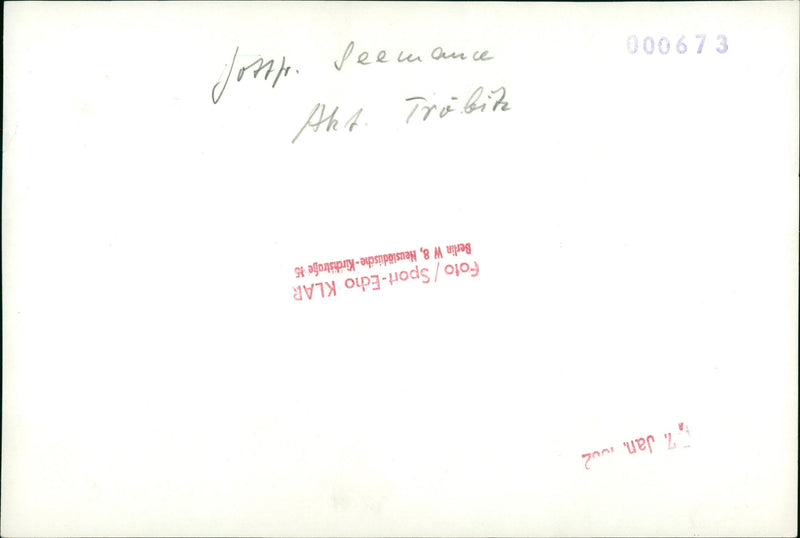 000673
Seemann
Akt. Tröbitz
Foto/Sport-Echo KLAR
Berlin W 8, Neustädtische-Kirchstraße 15
7. Jan.